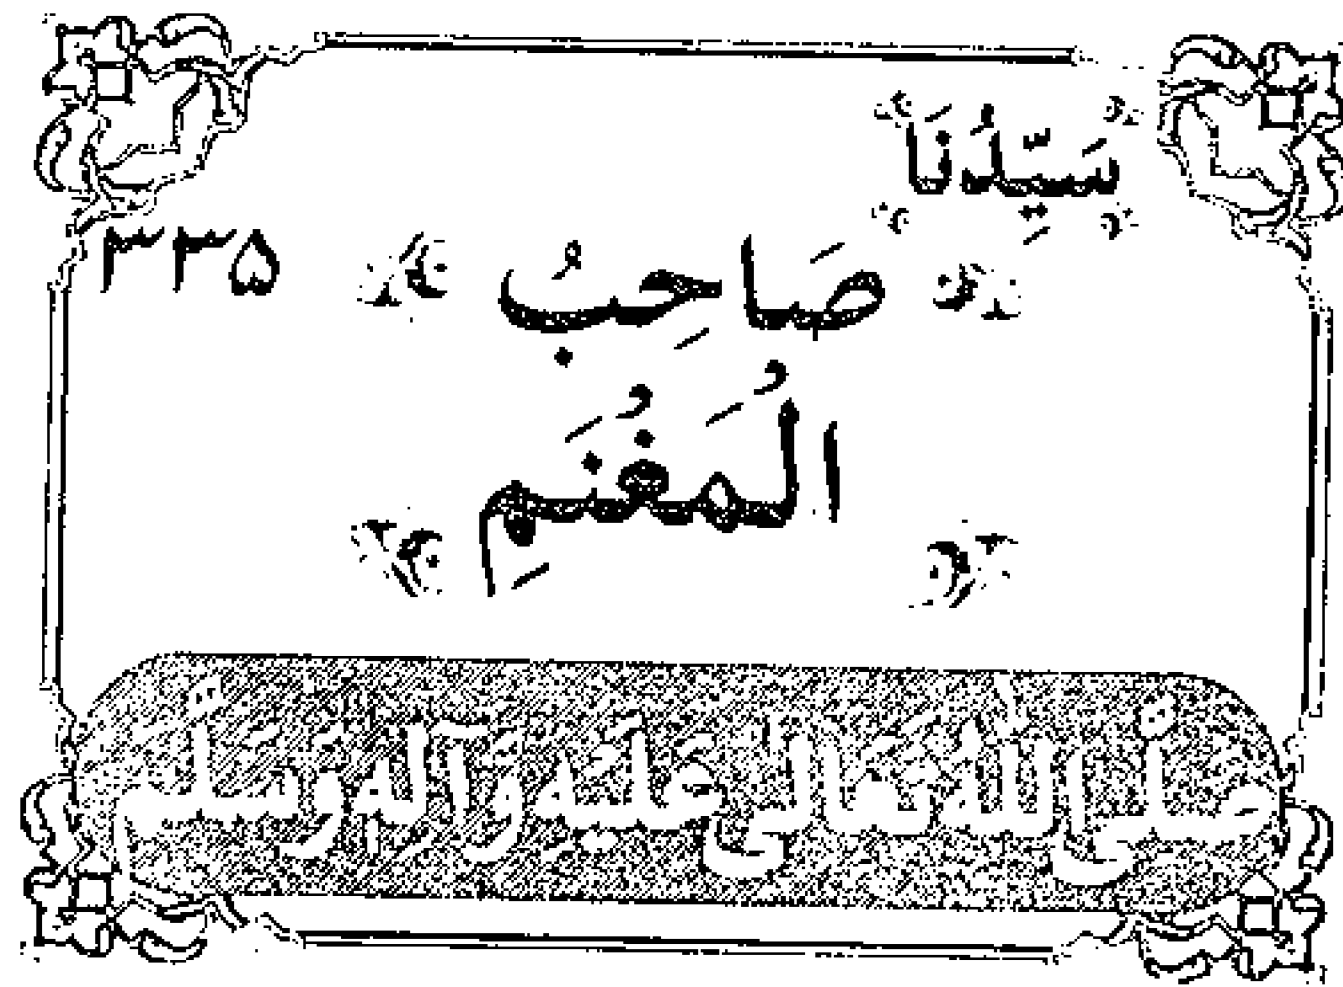 سَيِّدُنَا
صَاحِبُ ۳۳۵
الْمَغْنَمِ
صَلَّى اللهُ تَعَالٰى عَلَيْهِ وَآلِهٖ وَسَلَّمَ